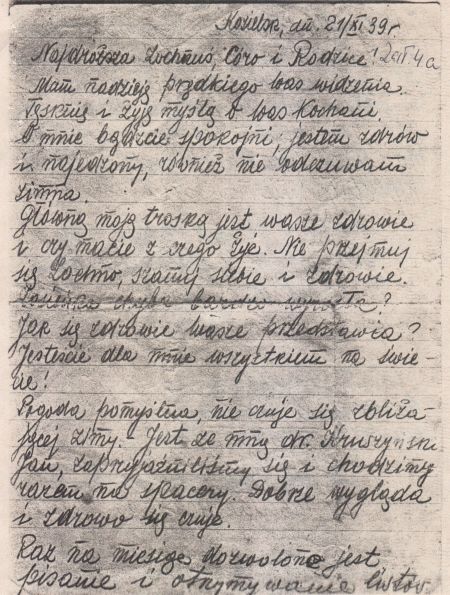 Kozielsk, dn. 21/XI 39 r.
Najdroższa Zochmo, Córo i Rodzice! Zał 4a
Mam nadzieję prędkiego was widzenia.
Tęsknię i żyję myślą o was Kochani.
O mnie bądźcie spokojni, jestem zdrów
i najedzony, również nie odczuwam
zimna.
Główną moją troską jest wasze zdrowie
i czy macie z czego żyć. Nie przejmuj
się Zochno, szanuj siebie i zdrowie.
chyba bardzo wyrosła?
Jak się zdrowie wasze przedstawia?
Jesteście dla mnie wszystkiem na świe-
cie!
Pogoda pomyślna, nie czuje się zbliża-
jącej zimy. - Jest ze mną dr. Kruszyński
Jan, zaprzyjaźniliśmy się i chodzimy
razem na spacery. Dobrze wygląda
i zdrowo się czuje.
Raz na miesiąc dozwolone jest
pisanie i otrzymywanie listów.